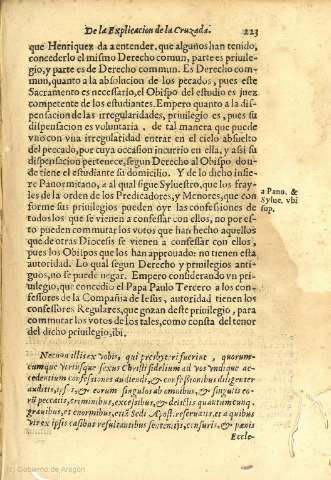 De la Explicacion de la Cruzada. 223
que Henriquez da a entender, que algunos han tenido,
concederlo el mismo Derecho comun, parte es priuile-
gio, y parte es de Derecho commun. Es Derecho com-
mun, quanto a la absolucion de los pecados, pues este
Sacramento es necessario, el Obispo del estudio es juez
competente de los estudiantes. Empero quanto a la dis-
pensacion de las irregularidades, priuilegio es, pues su
dispensacion es voluntaria, de tal manera que puede
vno con vna irregularidad entrar en el cielo absuelto
del peccado, por cuya occasion incurrio en ella, y assi su
dispensacion pertenece, segun Derecho al Obispo don-
de tiene el estudiante su domicilio. Y de lo dicho insie-
re Panormitano, a al qual sigue Syluestro, que los fray-
les de la orden de los Predicadores, y Menores, que con
forme sus priuilegios pueden oyr las confessiones de
todos los que se vienen a confessar con ellos, no por es-
to pueden commutar los votos que han hecho aquellos
que de otras Diocesis se vienen a confessar con ellos,
pues los Obispos que los han approuado no tienen esta
autoridad. Lo qual segun Derecho y priuilegios anti-
guos, no se puede negar. Empero considerando vn pri-
uilegio, que concedio el Papa Paulo Tercero a los con-
fessores de la Compañia de Iesus, autoridad tienen los
confessores Regulares, que gozan deste priuilegio, para
commutar los votos de los tales, como consta del tenor
del dicho priuilegio, ibi.
a Pano. &
Sylue. vbi
sup.
Necnon illis ex vobis, qui presbyteri fuerint, quorum-
cumque vtriusque sexus Christi fidelium ad vos vndique ac-
cedentium confessiones audiendi, & confessionibus diligenter
auditis, ipsos, & eorum singulos ab omnibus, & singulis eo-
rũ peccatis, criminibus, excessibus, & delictis quantumcunq.
grauibus, et enormibus, etiã Sedi Apost. reseruatis, et a quibus
vis ex ipsis casibus resultantibus sententijs, censuris, & pœnis
Eccle-
(c) Gobierno de Aragón